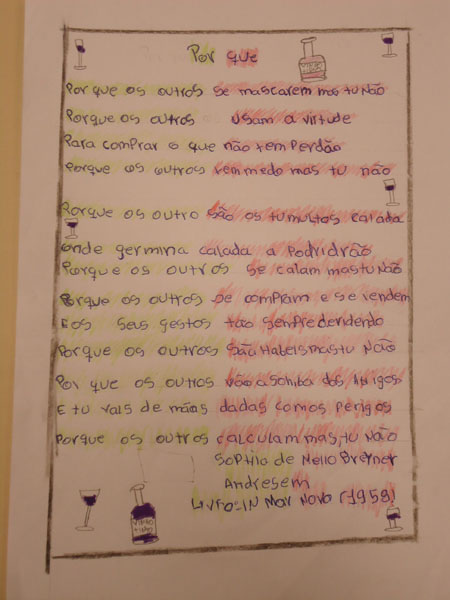 Por que
Porque os outros se mascarem mas tu não
Porque os outros usam a virtude
Para comprar o que não tem Perdão
Porque os outros tem medo mas tu não
Porque os outro são os tumultos caiada
onde germina calada a Podridrão
Porque os outros se calam mas tu não
Porque os outros se compram e se vendem
E os seus gestos tão sempre dividendo
Porque os outros são Habeis mas tu Não
Por que os outros vão a sombra dos Abrigos
E tu vais de mãos dadas com os Perigos
Porque os outros calculam mas tu não
Sophia de Mello Breyner
Andresem
LIVRO-IN Mar Novo (1958)
VINHO
TINTO